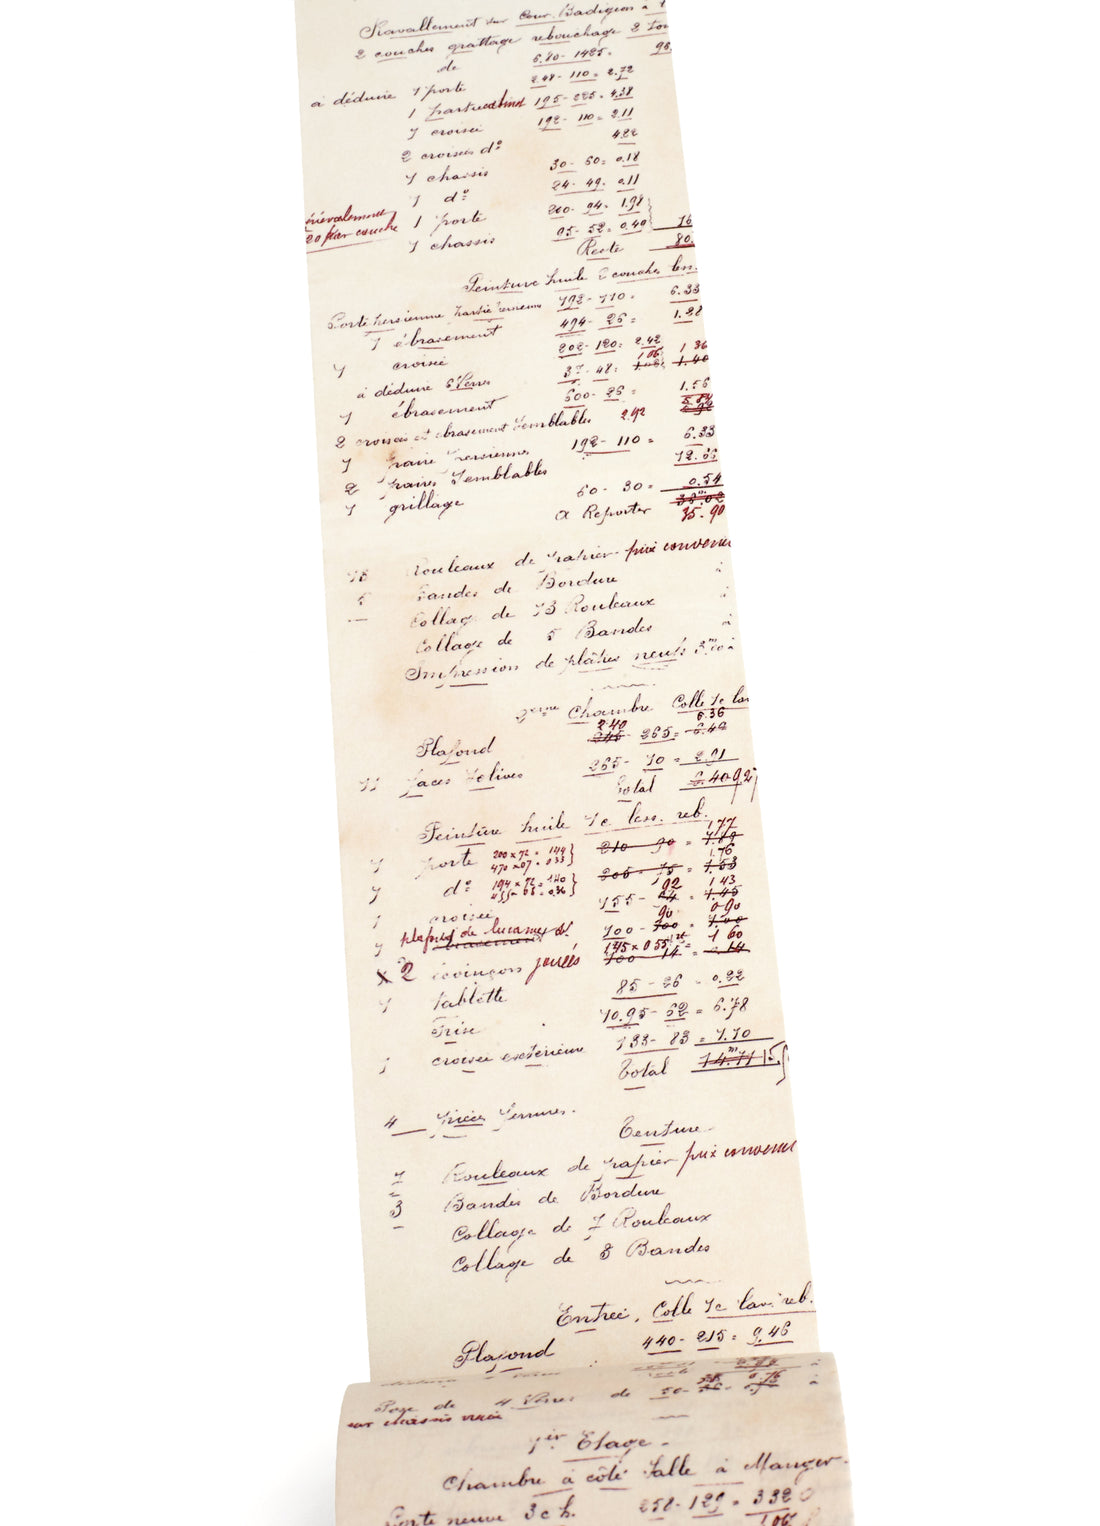 Ravallement sur Cour. Badigeon à
2 couches grattage rebouchage 2 tons
de 6.80 - 1425 = 96.
à déduire 1 porte 2.48 - 110 = 2.72
1 195 - 225 = 4.38
1 croisée 192 - 110 = 2.11
2 croisées do 4.22
1 chassis 30 - 60 = 0.18
1 do 24 - 49 = 0.11
1 porte 210 - 94 = 1.98
20 par couche
1 chassis 95 - 52 = 0.49 16
Reste 80.
Peinture huile 2 couches less.
Porte persienne partie 192 - 110 = 6.33
1 ébrasement 494 - 26 = 1.28
1 croisée 202 - 120 = 2.42 1 36
à déduire 6 Verres 37 - 48 = 1 06 1.40
1 ébrasement 600 - 26 = 1.56
2 croisées et ébrasement semblables 2.92
1 paire persiennes 192 - 110 = 6.33
2 paires semblables 12.66
1 grillage 60 - 30 = 0.54
a Reporter 35.90
13 Rouleaux de papier prix convenu
5 Bandes de Bordure
Collage de 13 Rouleaux à
Collage de 5 Bandes à
Impression de plâtres neufs
2eme Chambre Colle 1c lav
2 40 6.36
Plafond 246 - 265 = 6.42
11 faces solives 265 - 10 = 2.91
Total 6.40 9.27
Peinture huile 1c less. reb.
1,77
1 porte 200 x 72 = 144 210 - 90 = 1.89
470 x 07 = 0 33 1.76
1 do 194 x 72 = 1.40 206 - 75 = 1.53
92 1 43
1 croisée 155 - 94 = 1.45
90 0 90
1 plafond de lucarne 100 - 100 = 1.00
145 x 0 55 1 60
x 2 écoinçons jouées 100 - 14 = 0.14
1 tablette 85 - 26 = 0.22
Frise 10.95 - 62 = 6.78
1 croisée extérieure 133 - 83 = 1.10
Total 14.71
4 pièces ferrures.
Tenture
7 Rouleaux de papier prix convenu
3 Bandes de Bordure
Collage de 7 Rouleaux
Collage de 3 Bandes
Entrée, Colle 1c lav. reb.
Plafond 440 - 215 = 9.46
Pose de 4 Verres de à
sur chassis
1er Etage -
Chambre à côté Salle à Manger.
Porte neuve 3 c h. 258 - 129 = 3 32